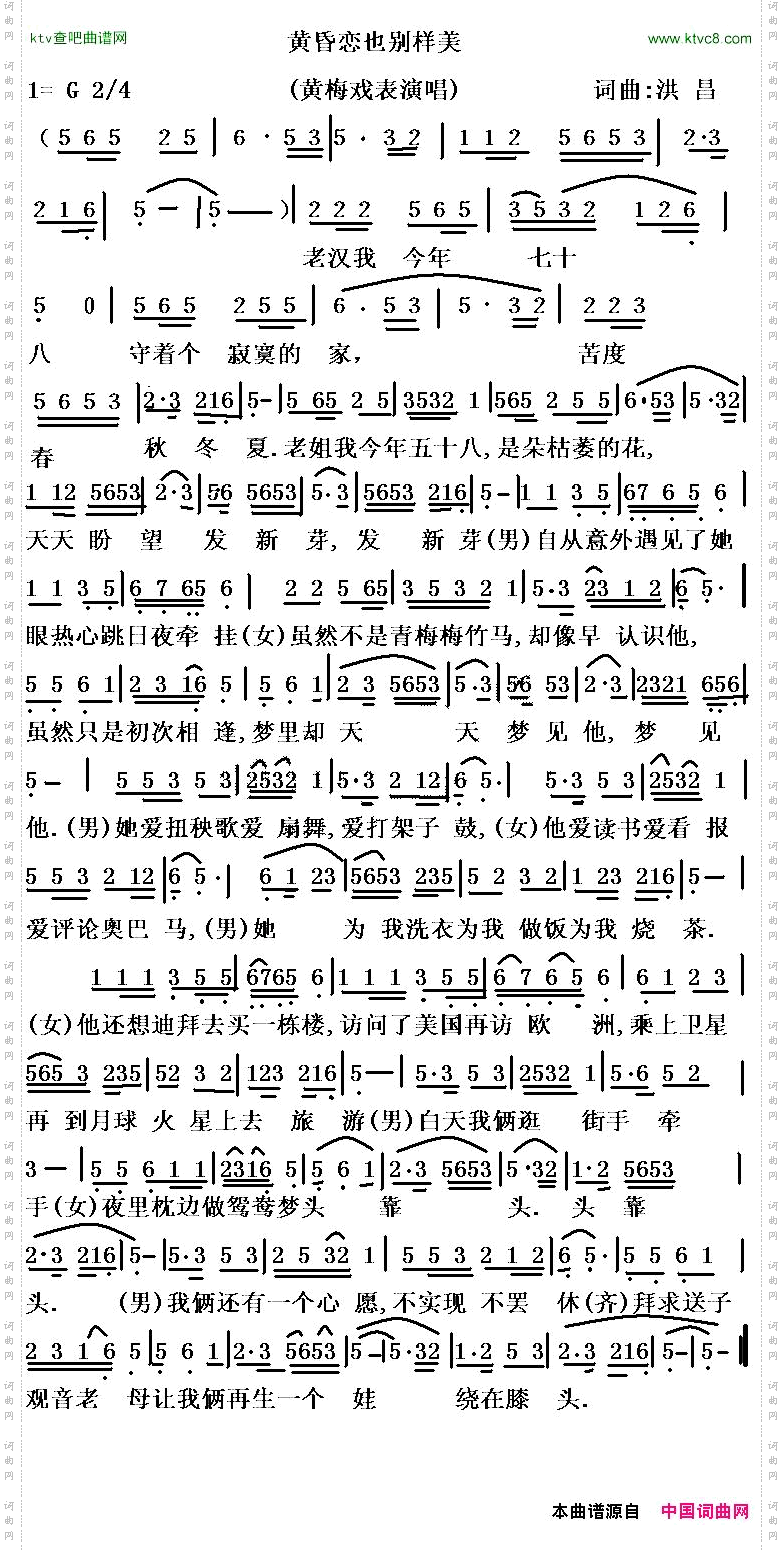 ktv查吧曲谱网
黄昏恋也别样美
www.ktvc8.com
1= G 2/4
(黄梅戏表演唱)
词曲:洪 昌
(5 6 5 2 5 | 6 · 5 3 | 5 · 3 2 | 1 1 2 5 6 5 3 | 2·3
2 1 6 | 5 — | 5 —— ) | 2 2 2 5 6 5 | 3 5 3 2 1 2 6 |
老汉我 今年 七十
5 0 | 5 6 5 2 5 5 | 6 . 5 3 | 5 · 3 2 | 2 2 3
八 守着个 寂寞的 家, 苦度
5 6 5 3 | 2·3 216 | 5- | 5 65 2 5 | 3532 1 | 565 2 5 5 | 6·53 | 5·32 |
春 秋 冬 夏.老姐我今年五十八,是朵枯萎的花,
1 12 5653 | 2·3 | 56 5653 | 5·3 | 5653 216 | 5- | 1 1 3 5 | 67 6 5 6 |
天天 盼 望 发 新 芽, 发 新 芽(男)自从意外遇见了她
1 1 3 5 | 6 7 65 6 | 2 2 5 65 | 3 5 3 2 1 | 5·3 23 1 2 | 6 5· |
眼热心跳日夜牵 挂(女)虽然不是青梅梅竹马,却像早 认识他,
5 5 6 1 | 2 3 16 5 | 5 6 1 | 2 3 5653 | 5·3 | 56 53 | 2·3 | 2321 656 |
虽然只是初次相 逢,梦里却 天 天 梦 见 他, 梦 见
5— | 5 5 3 5 3 | 2532 1 | 5·3 2 12 | 6 5· | 5·3 5 3 | 2532 1 |
他.(男)她爱扭秧歌爱 扇舞,爱打架子 鼓,(女)他爱读书爱看 报
5 5 3 2 12 | 6 5 · | 6 1 23 | 5653 235 | 5 2 3 2 | 1 23 216 | 5— |
爱评论奥巴 马,(男)她 为 我洗衣为我 做饭为我 烧 茶.
1 1 1 3 5 5 | 6765 6 | 1 1 1 3 5 5 | 6 7 6 5 6 | 6 1 2 3 |
(女)他还想迪拜去买一栋楼,访问了美国再访 欧 洲,乘上卫星
565 3 235 | 52 3 2 | 123 216 | 5— | 5·3 5 3 | 2532 1 | 5·6 5 2
再 到月球 火 星上去 旅 游(男)白天我俩逛 街手 牵
3— | 5 5 6 1 1 | 2316 5 | 5 6 1 | 2·3 5653 | 5·32 | 1·2 5653 |
手(女)夜里枕边做鸳鸯梦头 靠 头. 头 靠
2·3 216 | 5- | 5·3 5 3 | 2 5 32 1 | 5 5 3 2 1 2 | 6 5· | 5 5 6 1 |
头. (男)我俩还有一个心 愿,不实现 不罢 休(齐)拜求送子
2 3 1 6 5 | 5 6 1 | 2·3 5653 | 5- | 5·32 | 1·2 5 3 | 2·3 216 | 5- | 5- ‖
观音老 母让我俩再生一个 娃 绕在膝 头.
本曲谱源自 中国词曲网